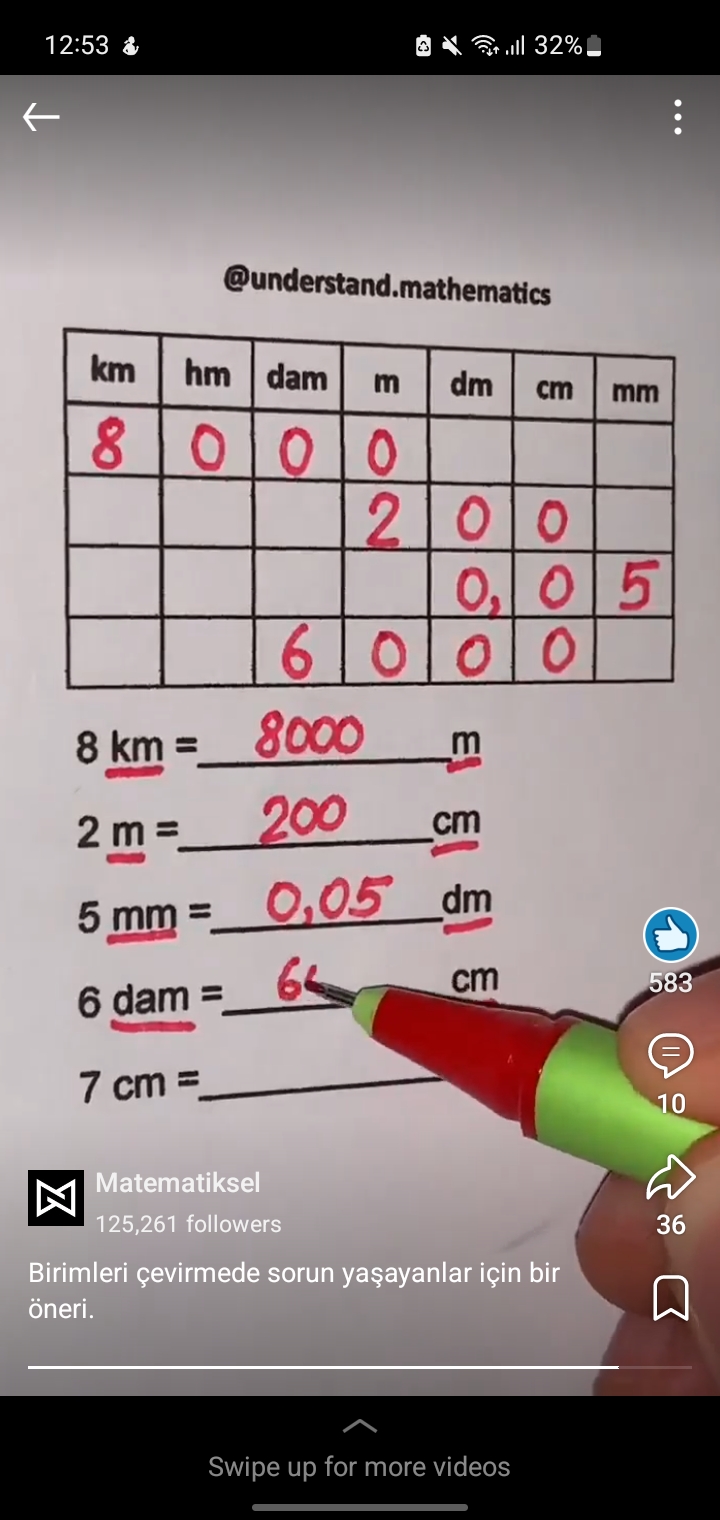 12:53 32%
@understand.mathematics
km hm dam m dm cm mm
8 0 0 0
2 0 0
0, 0 5
6 0 0 0
8 km = 8000 m
2 m = 200 cm
5 mm = 0,05 dm
6 dam = 6 cm
7 cm =
583
10
Matematiksel
125,261 followers
36
Birimleri çevirmede sorun yaşayanlar için bir
öneri.
Swipe up for more videos